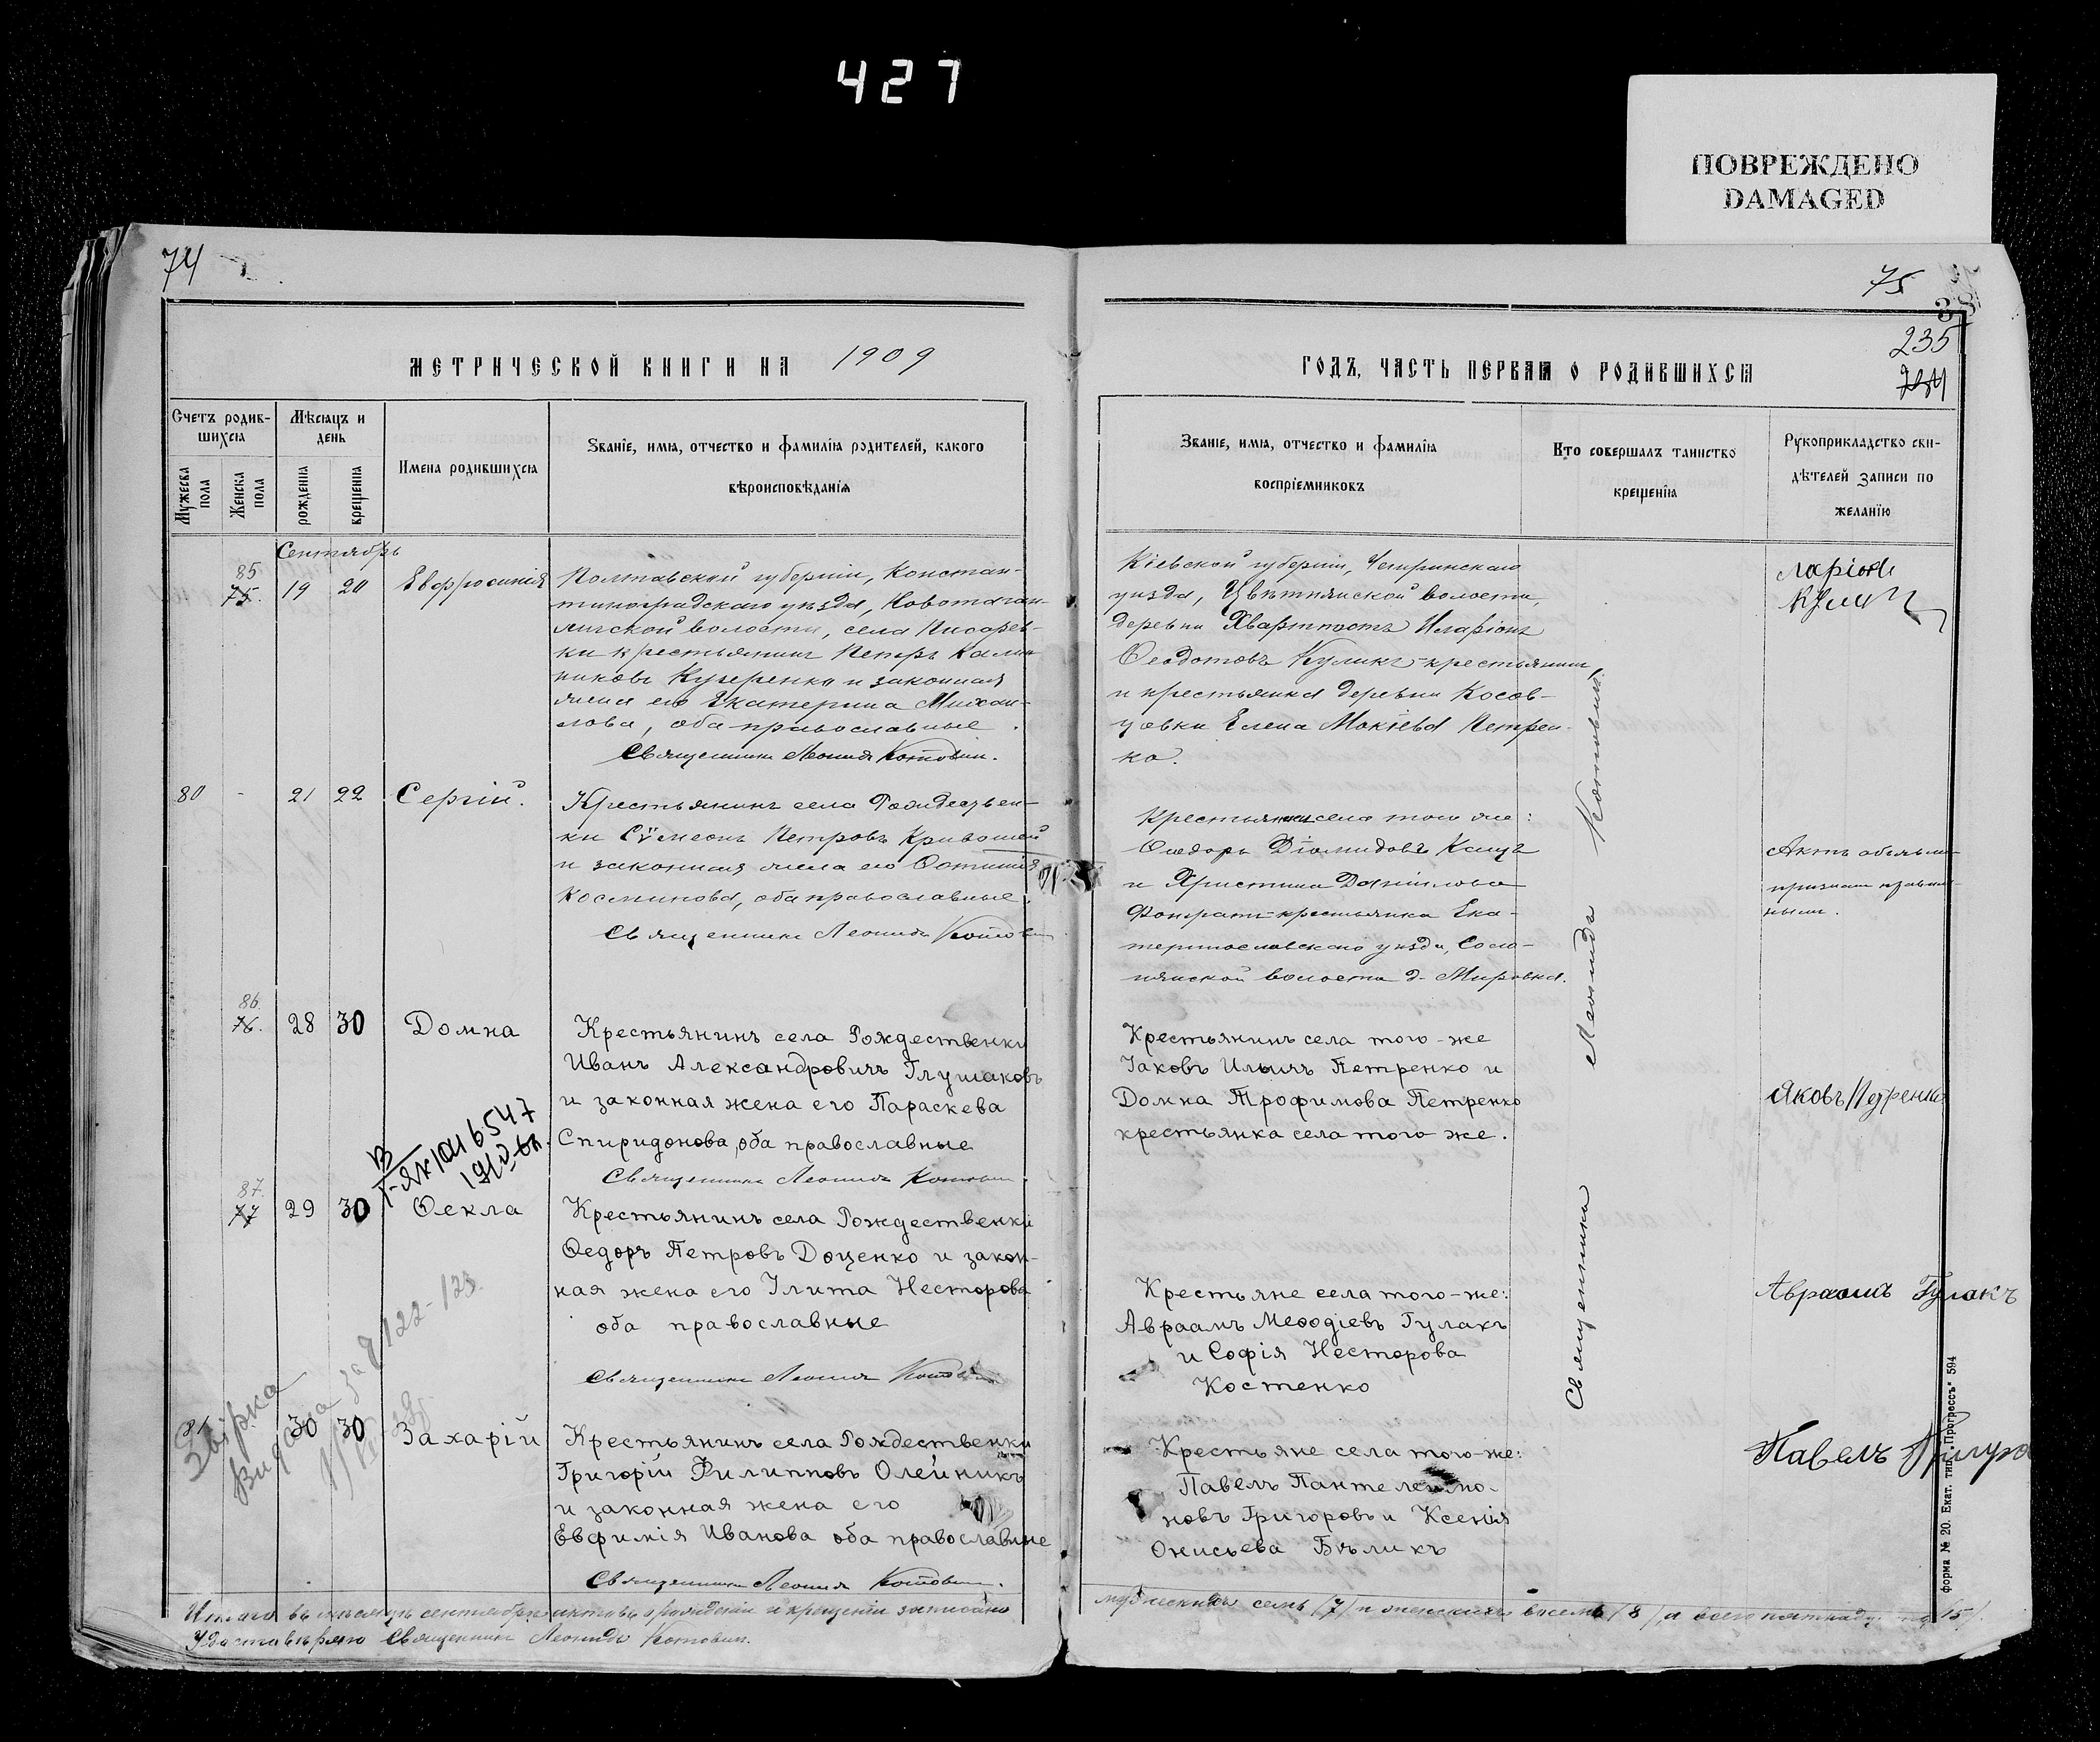 427
ПОВРЕЖДЕНО
DAMAGED
74
МЕТРИЧЕСКОЙ КНИГИ НА 1909
Счетъ родив-
шихся
Мужеска пола
Женска пола
Мѣсяцъ и
день
рожденія
крещенія
Имена родившихся
Званіе, имя, отчество и фамилія родителей, какого
вѣроисповѣданія
Сентябрь
85
75. 19 20 Евфросинія
Полтавской губерніи, Констан-
тиноградскаго уѣзда,
волости, села Писарев-
ки крестьянинъ Петръ
Кучеренко и законная
жена его Екатерина Михаи-
лова, оба православные.
Священникъ Леонидъ Котович.
80 - 21 22 Сергій.
Крестьянинъ села Рождествен-
ки Сѵмеонъ Петровъ Кривошей
и законная жена его Фотинія
Косминова, оба православные.
Священникъ Леонидъ
86.
76. 28 30 Домна
Крестьянинъ села Рождественки
Иванъ Александровичъ Глушаковъ
и законная жена его Параскева
Спиридонова, оба православные
Священникъ Леонидъ
87.
77 29 30 Ѳекла
Крестьянинъ села Рождественки
Ѳедоръ Петровъ Доценко и закон-
ная жена его Улита Несторова
оба православные
Священникъ Леонидъ
122-123.
Звірка
81 30 30 Захарій
Крестьянинъ села Рождественки
Григорій Филипповъ Олейникъ
и законная жена его
Евфимія Иванова оба православные
Священникъ Леонидъ
Итого въ мѣсяцѣ сентябрѣ актовъ о рожденіи и крещеніи записано
Священникъ Леонидъ Котович.
75
235
ГОДЪ, ЧАСТЬ ПЕРВАЯ О РОДИВШИХСЯ
Званіе, имя, отчество и фамилія
воспріемниковъ
Кто совершалъ таинство
крещенія
Рукоприкладство сви-
дѣтелей записи по
желанію
Кіевской губерніи, Чигринскаго
уѣзда, Цвѣтнянской волости,
деревни Иларіонъ
Ѳеодотовъ Куликъ-крестьянинъ,
и крестьянка деревни Косов-
цовки Елена Мокіева Петрен-
ко.
Крестьянинъ села того же:
Ѳеодоръ Діомидовъ Кацъ
и Христина Даніилова
крестьянка Ека-
теринославскаго уѣзда, Соло-
нянской волости д. Мировка.
Крестьянинъ села того-же
Іаковъ Ильичъ Петренко и
Домна Трофимова Петренко
крестьянка села того же.
Яковъ Петренко
Крестьяне села того-же:
Авраамъ Меѳодіевъ Гулакъ
и Софія Несторова
Костенко
Авраамъ Гулакъ
Крестьяне села того-же:
Павелъ Пантелеимо-
новъ Григоровъ и Ксенія
Онисьева Бѣликъ
Павелъ
Священникъ Леонидъ Котовичъ
мужескихъ семь (7) и женскихъ восемь (8), а всего пятнадцать (15).
форма № 20. Екат. тип. „Прогрессъ“ 594